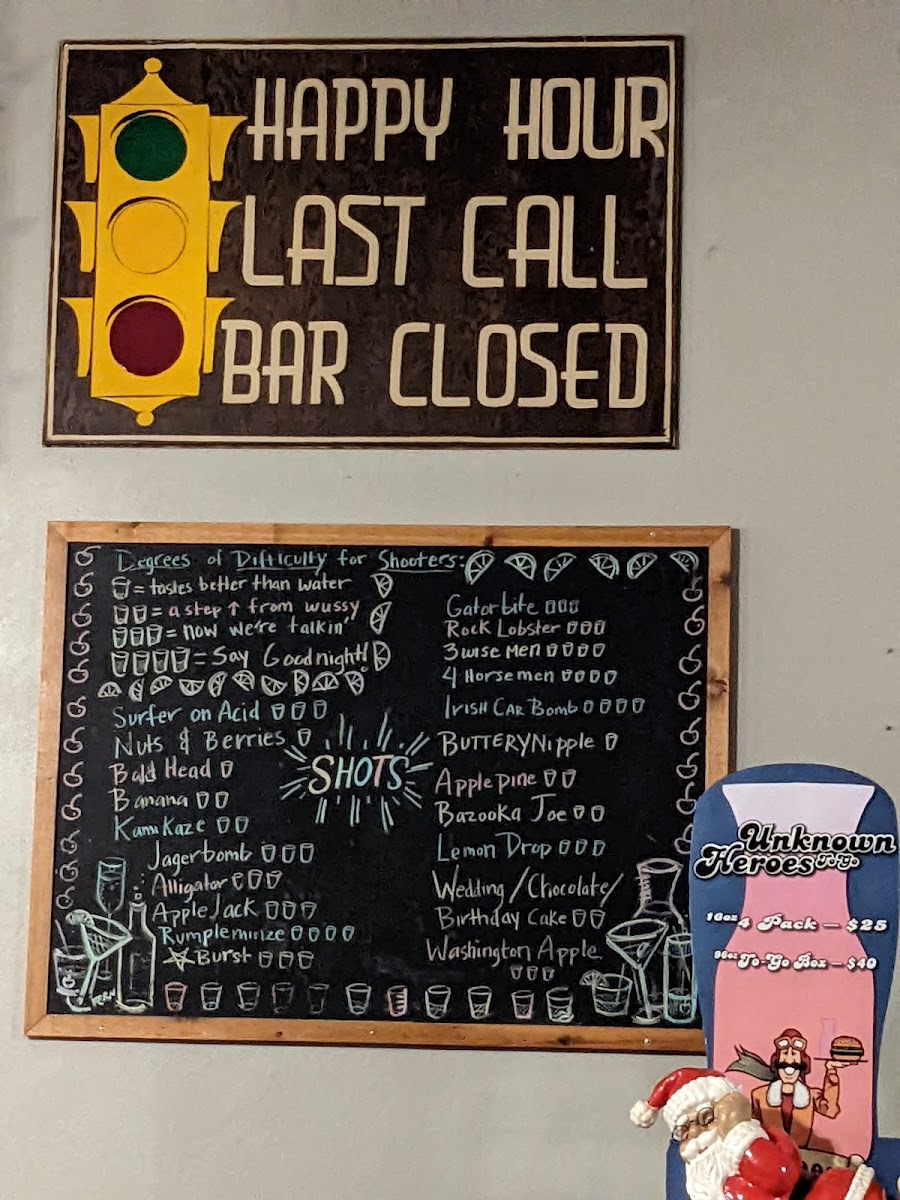 HAPPY HOUR
LAST CALL
BAR CLOSED
Degrees of Difficulty for Shooters:
= tastes better than water
= a step ↑ from wussy
= now we're talkin'
= Say Goodnight!
Surfer on Acid
Nuts & Berries
Bald Head
Banana
Kamikaze
Jagerbomb
Alligator
Apple Jack
Rumpleminze
Burst
SHOTS
Gator bite
Rock Lobster
3 wise Men
4 Horsemen
Irish Car Bomb
BUTTERY Nipple
Apple pine
Bazooka Joe
Lemon Drop
Wedding / Chocolate /
Birthday Cake
Washington Apple
Unknown
Heroes To Go
16oz 4 Pack — $25
96oz To-Go Box — $40